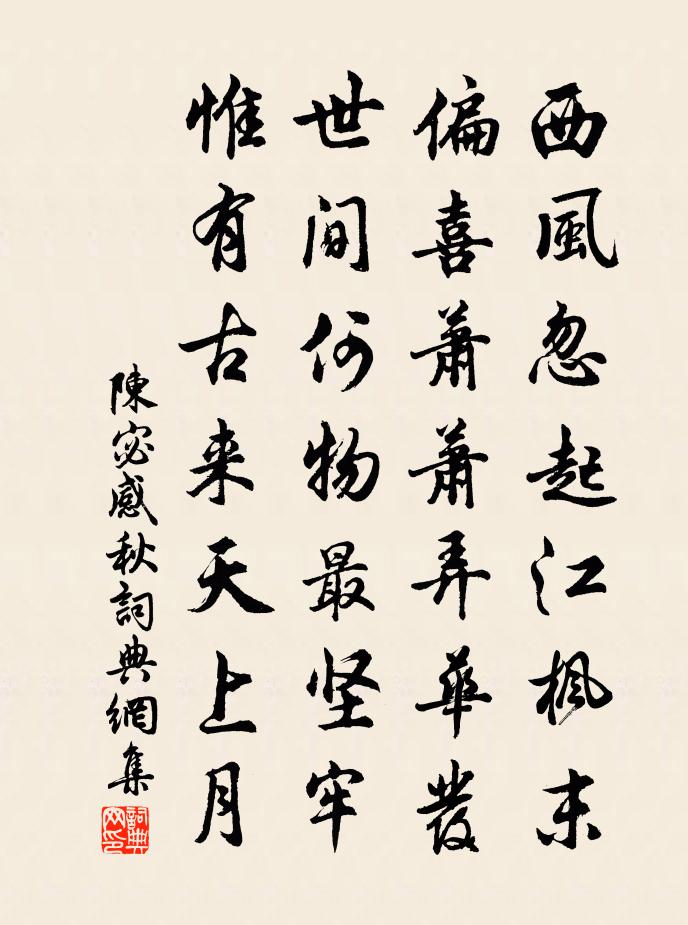 西風忽起江楓末
偏喜蕭蕭弄華發
世間何物最坚牢
惟有古来天上月
陳宓感秋詞典網集
詞典网印